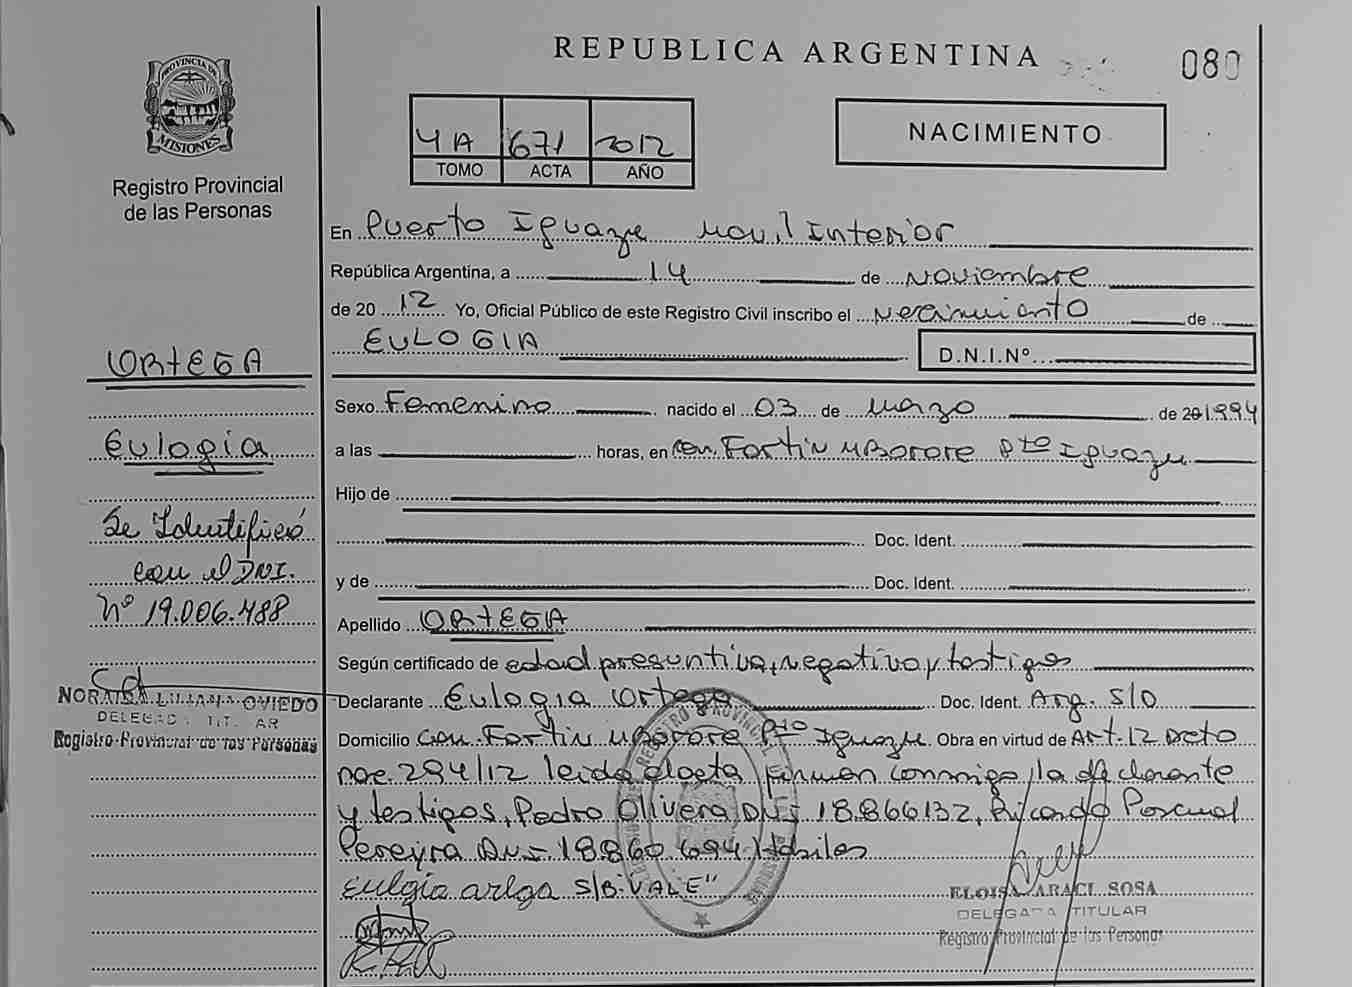 REPUBLICA ARGENTINA
080
PROVINCIA DE
MISIONES
Registro Provincial
de las Personas
4A 671 2012
TOMO ACTA AÑO
NACIMIENTO
En Puerto Iguazu Movil Interior
República Argentina, a 14 de Noviembre
de 20 12 Yo, Oficial Público de este Registro Civil inscribo el Necimiento de
EULOGIA D.N.I.Nº
ORTEGA
Eulogia
Se Identificó
con el DNI.
Nº 19.006.488
NORAIDA LILIANA OVIEDO
DELEGADA TITULAR
Registro Provincial de las Personas
Sexo Femenino nacido el 03 de Marzo de 20 1994
a las horas, en com. Fortin MBorore Pto Iguazu
Hijo de
Doc. Ident.
y de Doc. Ident.
Apellido ORTEGA
Según certificado de edad presuntiva, negativa y testigos
Declarante Eulogia Ortega Doc. Ident. Arg. S/D
Domicilio com Fortin MBorore Pto Iguazu. Obra en virtud de Art. 12 Dcto
nac. 294/12 leida el acta firman conmigo, la declarante
y testigos, Pedro Olivera DNI 18.866132, Ricardo Pascual
Pereyra DNI 18.860.694 Habiles
Eulgia arlga S/B: VALE"
ELOISA ARACI SOSA
DELEGADA TITULAR
Registro Provincial de las Personas